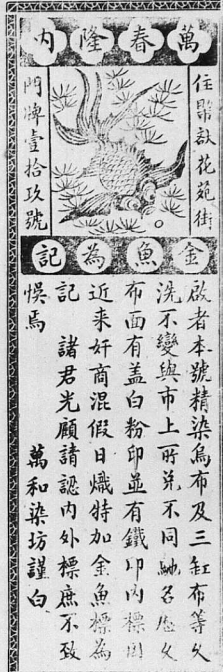 萬春隆內
住花苑街
門牌壹拾玖號
金魚為記
啟者本號精染烏布及三缸布等久
洗不變與市上所兌不同馳名歷久
布面有盖白粉印並有鐵印內標因
近来奸商混假日熾特加金魚標為
記 諸君光顧請認內外標庶不致
悞焉 萬和染坊謹白